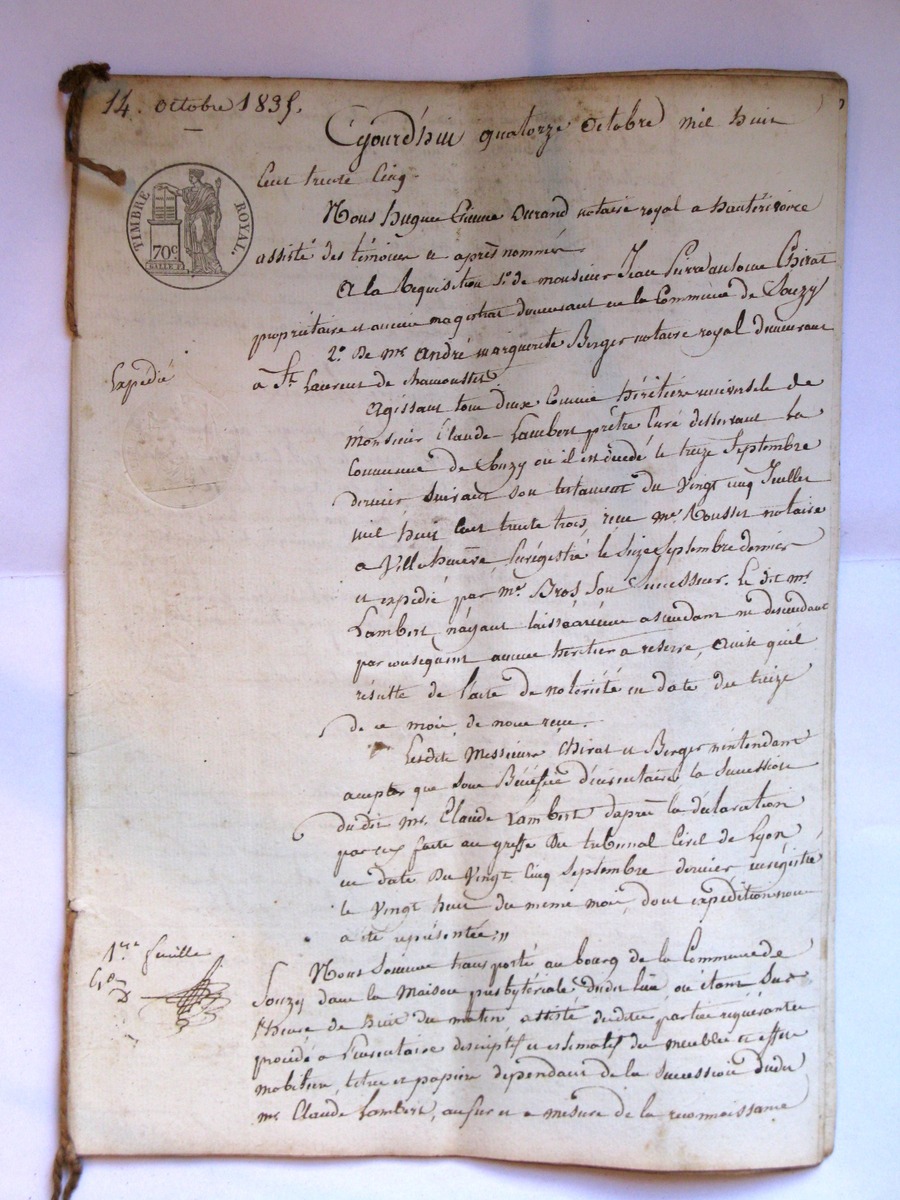 14. octobre 1835.
Cejourd'hui quatorze octobre mil huit
Cent trente Cinq.
TIMBRE ROYAL.
70c
Nous hugues Etienne Durand notaire royal a hauterivoire
assisté des témoins ci après nommés
A la Requisition 1° de monsieur Jean Pierre antoine Chirat
propriétaire et ancien magistrat demeurant en la Commune de Souzy
2° De mr André marguerite Berger notaire royal demeurant
Expédié
à St Laurent de chamousset
Agissant tous deux Comme héritiers universels de
monsieur Claude Lambert prêtre Curé desservant La
Commune de Souzy ou il est décédé le treize Septembre
dernier suivant son testament du vingt cinq Juillet
mil huit cent trente trois, recu me Rousset notaire
a Ville Enregistré le Seize Septembre dernier
et expédié par me Bros Son Successeur. Le dit mr
Lambert n'ayant laissé aucun ascendant ni descendant
par consequent aucun héritier a reserve, ainsi qu'il
résulte de l'acte de notoriété en date du treize
de ce mois, de nous reçu.
Lesdits Messieurs Chirat et Berger n'entendant
accepter que sous Bénéfice d'inventaire la Succession
du dit mr Claude Lambert d'après la déclaration
par eux faite au greffe Du tribunal Civil de Lyon
en date Du Vingt Cinq Septembre dernier, enregistré
le vingt huit du même mois, dont expédition nous
a été représentée,,
1re feuille
Nous Sommes transporté au bourg de la Commune de
Souzy dans la Maison presbytériale dudit lieu ou étant Sur
l'heure de huit du matin assisté desdites parties requérantes
procédé a l'inventaire descriptif et estimatif des meubles et effets
mobiliers titres et papiers dépendant de la succession dudit
mr Claude Lambert, au fur et a mesure de la reconnaissance